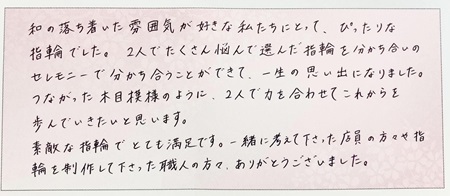 和の落ち着いた雰囲気が好きな私たちにとって、ぴったりな
指輪でした。2人でたくさん悩んで選んだ指輪を分かち合いの
セレモニーで分かち合うことができて、一生の思い出になりました。
つながった木目模様のように、2人で力を合わせてこれからを
歩んでいきたいと思います。
素敵な指輪でとても満足です。一緒に考えて下さった店員の方々や指
輪を制作して下さった職人の方々、ありがとうございました。